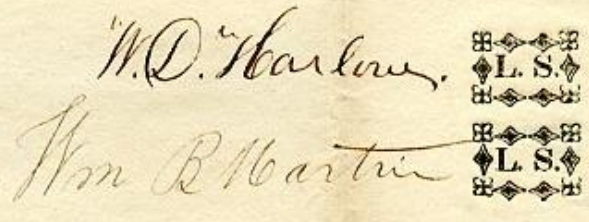 "W. D." Harlow. L. S.
Wm B Martin L. S.